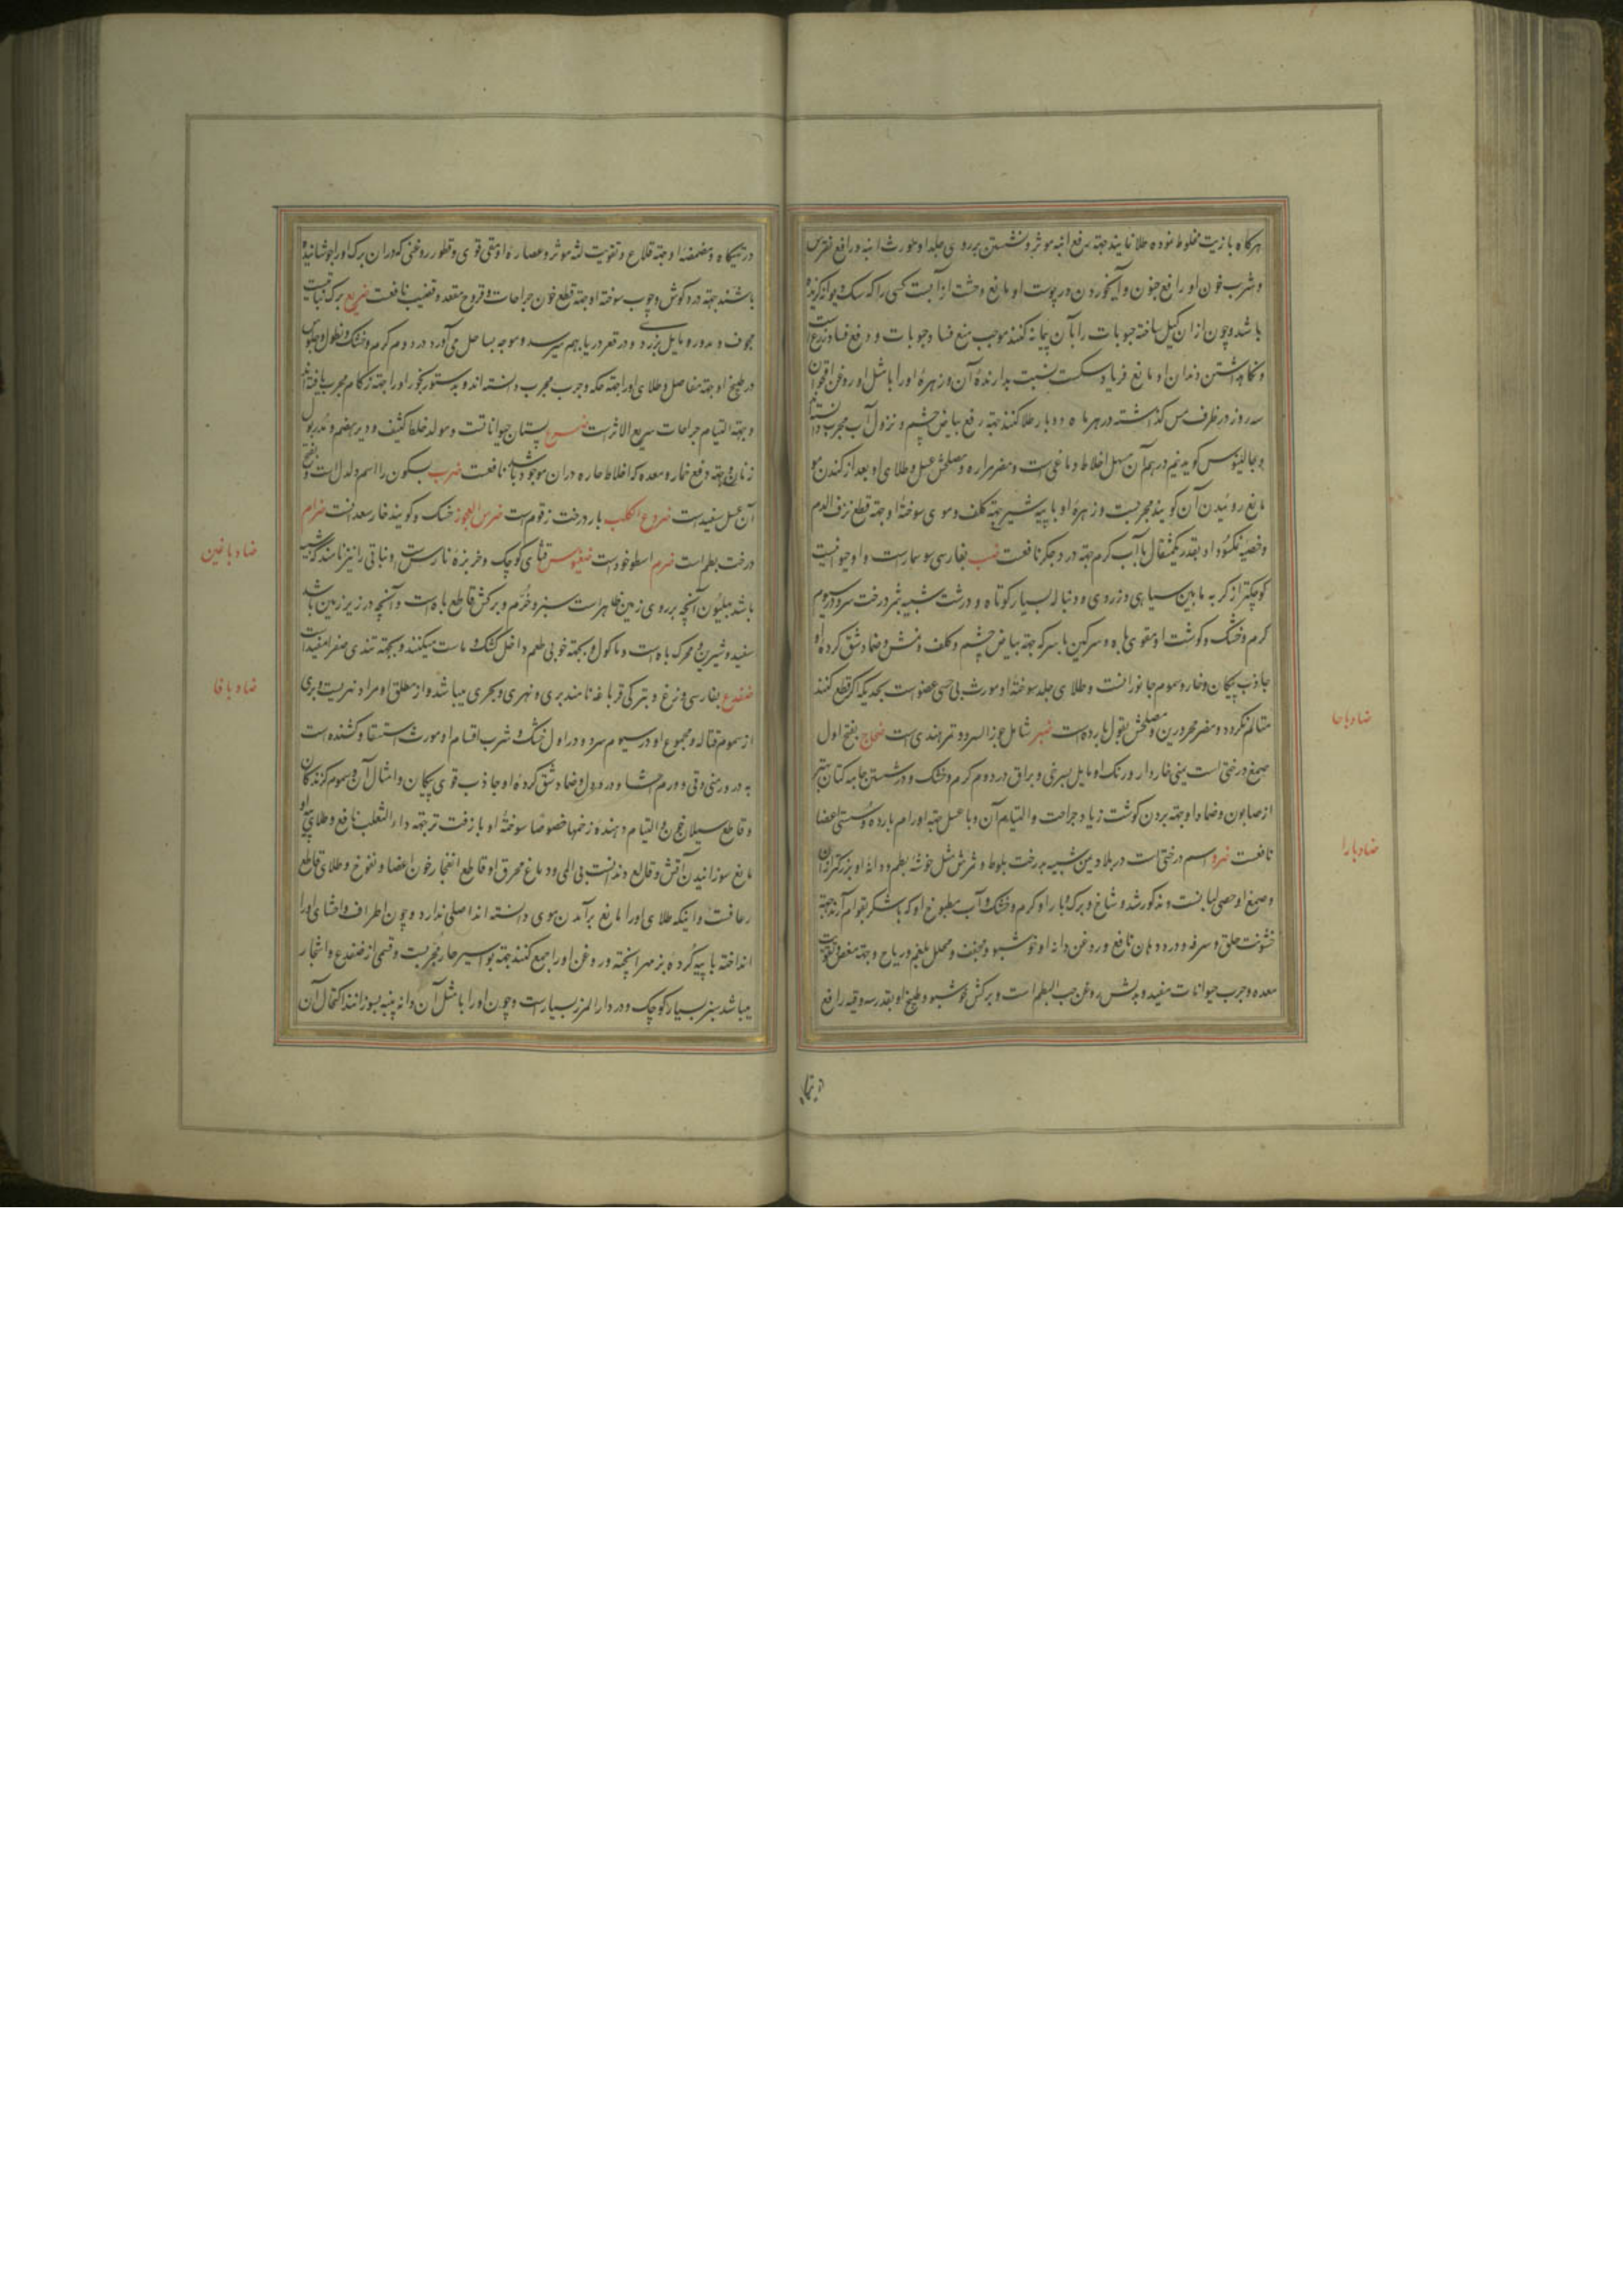 هرکاه با زیت مخلوط نموده طلا نمایند جهة رفع ابنه موثر و نشستن بر روی جلد او مورث ابنه و رافع نقرس
و شرب خون او رافع جنون و آبخوردن در پوست او مانع وحشت از آبست کسی را که سک دیوانه کزیده
باشد و چون از آن کیل ساخته حبوبات را بآن پیمانه کنند موجب منع فساد حبوبات و دفع فساد زرع است
و نکاهداشتن دندان او مانع فریاد سکست نسبت بدارندۀ آن و زهرۀ او را با مثل او روغن اقحوان
سه روز در ظرف مس کذاشته در هر ماه دو بار طلا کنند جهة رفع بیاض چشم و نزول آب مجرب دانسته‌اند
و جالینوس کوید نیم درهم آن مسهل اخلاط دماغی است و مضر مراره و مصلحش عسل و طلای او بعد از کندن مو
مانع روئیدن آن کویند مجربست و زهرۀ او با پیه شیر جهة کلف و موی سوختۀ او جهة قطع نزف الدم
و خصیۀ نمکسود او بقدر یکمثقال با آب کرم جهة درد جکر نافعست ضب بفارسی سوسمار است و او حیوانیست
کوچکتر از کربه مابین سیاهی و زردی و دنباله بسیار کوتاه و درشت شبیه بثمر درخت سرو در سیوم
کرم و خشک و کوشت او مقوی باه و سرکین با سرکه جهة بیاض چشم و کلف و نمش و ضماد شق کردۀ او
جاذب پیکان و خار و سموم جانورانست و طلای جلد سوختۀ او مورث بی حسی عضو است بحدیکه اکر قطع کنند
متالم نکردد و مضر محرورین و مصلحش بقول بارده است ضبر شامل جوز السرو و تمر هندی است ضجاج بفتح اول
صمغ درختی است یمنی خاردار و رنک او مایل بسرخی و براق در دوم کرم و خشک و در شستن جامه کتان بهتر
از صابون و ضماد او جهة بردن کوشت زیاد جراحت و التیام آن و با عسل جهة اورام بارده و سستی اعضا
نافعست ضرو اسم درختیست در بلاد یمن شبیه بدرخت بلوط و ثمرش مثل خوشۀ بطم و دانۀ او بزرکتر از آن
و صمغ او حصی لبانست و مذکور شد و شاخ و برک و بار او کرم و خشک و آب مطبوخ او که با شکر بقوام آرند جهة
خشونت حلق و سرفه و درد دهان نافع و روغن دانه او خوشبو و مجفف و محلل بلغم و ریاح و جهة مغص و تقویت
معده و جرب حیوانات مفید و بدلش روغن حب البطم است و برکش خوشبو و طبیخ او بقدر سه وقیه رافع
ضاد با حا
ضاد با را
درتهیکاه و مضمضۀ او جهة قلاع و تقویت لثه موثر و عصارۀ او منقی قوی و قطور روغنی که در آن برک او را جوشانیده
باشند جهة درد کوش و چوب سوختۀ او جهة قطع خون جراحات و قروح مقعد و قضیب نافعست ضریع برک نباتیست
مجوف و مدور و مایل بزردی و در قعر دریا بهم میرسد و موجه بساحل می‌آورد در دوم کرم و خشک و نطول و جلوس
در طبیخ او جهة مفاصل و طلای او را جهة حکه و جرب مجرب دانسته‌اند و بدستور بخور او را جهة زکام مجرب یافته‌اند
و جهة التیام جراحات سریع الاثر است ضرس پستان حیواناتست و مولد خلط کثیف و دیر هضم و مدر بول
زنان و جهة دفع خمار و معده که اخلاط حاره در آن موجود باشد نافعست ضرب بسکون را اسم دلدل است و بفتح
آن عسل سفید است ضروع الکلب بار درخت زقوم است ضرس العجوز خسک و کویند خار سعدانست ضرام
درخت بطم است ضرم اسطوخودست ضغیوس قثای کوچک و خربزۀ نارس است و نباتی را نیز نامند که شبیه
باشد بهلیون آنچه بر روی زمین ظاهر است سبز و خرم و برکش قاطع باه است و آنچه در زیر زمین باشد
سفید و شیرین و محرک باه است و ماکول و بجهة خوبی طعم داخل کشک و ماست میکنند و بجهة تندی صفرا مفید است
ضفدع بفارسی وزغ و بترکی قرباغه نامند بری و نهری و بحری میباشد و از مطلق او مراد نهریست و بری
از سموم قتاله و مجموع او در سیوم سرد و در اول خشک و شرب اقسام او مورث استسقا و کشنده است
به درور منی و قی و ورم احشا و درد دل و ضماد شق کردۀ او جاذب قوی پیکان و امثال آن و سموم کزندکان
و قاطع سیلان خون و التیام دهندۀ زخمها خصوصا سوختۀ او با زفت تر جهة داء الثعلب نافع و طلای پیه او
مانع سوزانیدن آتش و قالع دندانست بی المی و دماغ محرق او قاطع انفجار خون اعضا و نفوخ و طلای قاطع
رعافت و اینکه طلای او را مانع برآمدن موی دانسته‌اند اصلی ندارد و چون اطراف و احشای او را
انداخته با پیه کردۀ بز مهرا پخته و روغن او را جمع کنند جهة بواسیر حار مجربست و قسمی از ضفدع و اشجار
میباشد سبز بسیار کوچک و در دار المرز بسیار است و چون او را با مثل آن دانه پنبه بسوزانند اکتحال آن
ضاد با غین
ضاد با فا